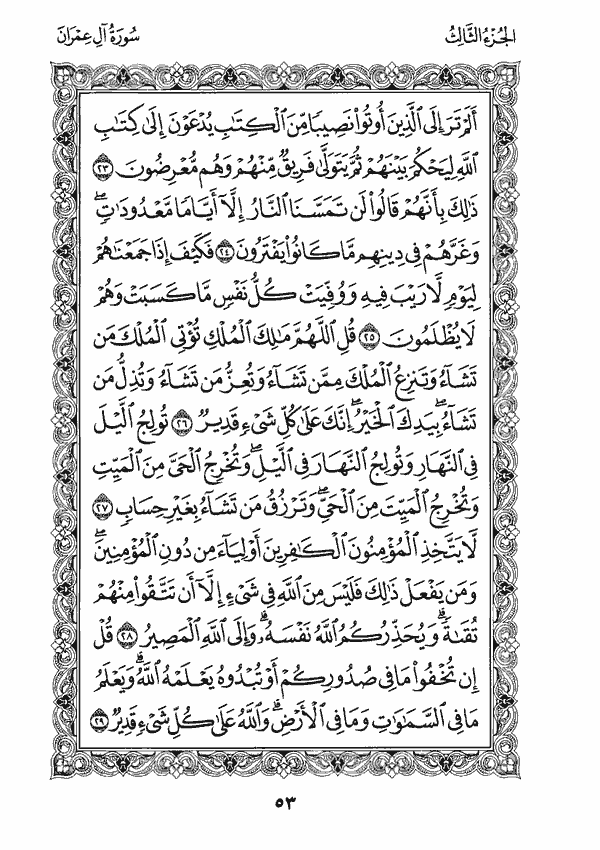 الجُزْءُ الثَّالِثُ
سُورَةُ آلِ عِمْرَانَ
أَلَمْ تَرَ إِلَى الَّذِينَ أُوتُوا نَصِيبًا مِّنَ الْكِتَابِ يُدْعَوْنَ إِلَىٰ كِتَابِ
اللَّهِ لِيَحْكُمَ بَيْنَهُمْ ثُمَّ يَتَوَلَّىٰ فَرِيقٌ مِّنْهُمْ وَهُم مُّعْرِضُونَ ٢٣
ذَٰلِكَ بِأَنَّهُمْ قَالُوا لَن تَمَسَّنَا النَّارُ إِلَّا أَيَّامًا مَّعْدُودَاتٍ ۖ
وَغَرَّهُمْ فِي دِينِهِم مَّا كَانُوا يَفْتَرُونَ ٢٤ فَكَيْفَ إِذَا جَمَعْنَاهُمْ
لِيَوْمٍ لَّا رَيْبَ فِيهِ وَوُفِّيَتْ كُلُّ نَفْسٍ مَّا كَسَبَتْ وَهُمْ
لَا يُظْلَمُونَ ٢٥ قُلِ اللَّهُمَّ مَالِكَ الْمُلْكِ تُؤْتِي الْمُلْكَ مَن
تَشَاءُ وَتَنزِعُ الْمُلْكَ مِمَّن تَشَاءُ وَتُعِزُّ مَن تَشَاءُ وَتُذِلُّ مَن
تَشَاءُ ۖ بِيَدِكَ الْخَيْرُ ۖ إِنَّكَ عَلَىٰ كُلِّ شَيْءٍ قَدِيرٌ ٢٦ تُولِجُ اللَّيْلَ
فِي النَّهَارِ وَتُولِجُ النَّهَارَ فِي اللَّيْلِ ۖ وَتُخْرِجُ الْحَيَّ مِنَ الْمَيِّتِ
وَتُخْرِجُ الْمَيِّتَ مِنَ الْحَيِّ ۖ وَتَرْزُقُ مَن تَشَاءُ بِغَيْرِ حِسَابٍ ٢٧
لَّا يَتَّخِذِ الْمُؤْمِنُونَ الْكَافِرِينَ أَوْلِيَاءَ مِن دُونِ الْمُؤْمِنِينَ ۖ
وَمَن يَفْعَلْ ذَٰلِكَ فَلَيْسَ مِنَ اللَّهِ فِي شَيْءٍ إِلَّا أَن تَتَّقُوا مِنْهُمْ
تُقَاةً ۗ وَيُحَذِّرُكُمُ اللَّهُ نَفْسَهُ ۗ وَإِلَى اللَّهِ الْمَصِيرُ ٢٨ قُلْ
إِن تُخْفُوا مَا فِي صُدُورِكُمْ أَوْ تُبْدُوهُ يَعْلَمْهُ اللَّهُ ۗ وَيَعْلَمُ
مَا فِي السَّمَاوَاتِ وَمَا فِي الْأَرْضِ ۗ وَاللَّهُ عَلَىٰ كُلِّ شَيْءٍ قَدِيرٌ ٢٩
٥٣